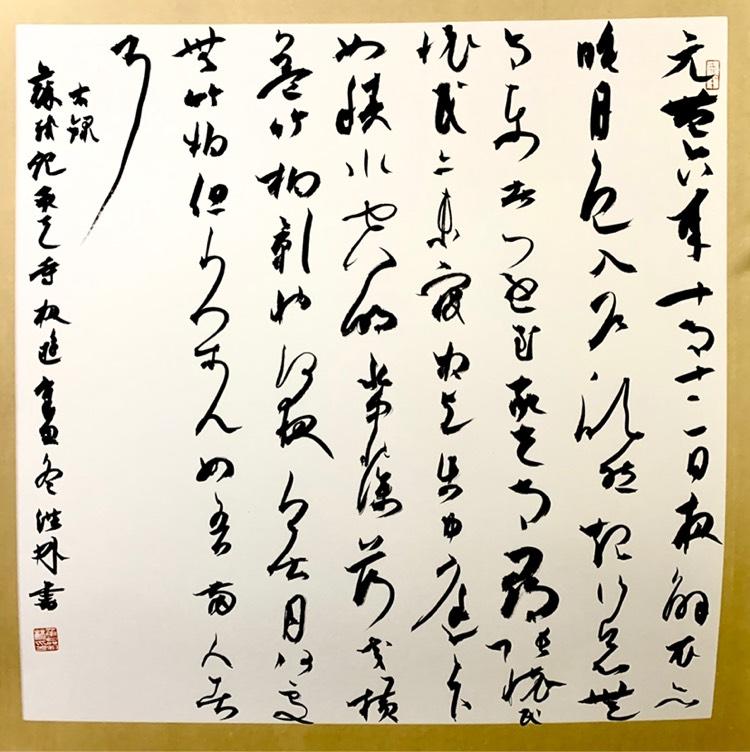 元豐六年十月十二日夜解衣欲
睡月色入户欣然起行念無
与樂者遂至承天寺尋張懷民
懷民亦未寢相与步中庭庭下
如積水空明水中藻荇交橫
蓋竹柏影也何夜無月何處
無竹柏但少闲人如吾兩人者
耳
右録
蘇軾記承天寺夜遊 冬 林書